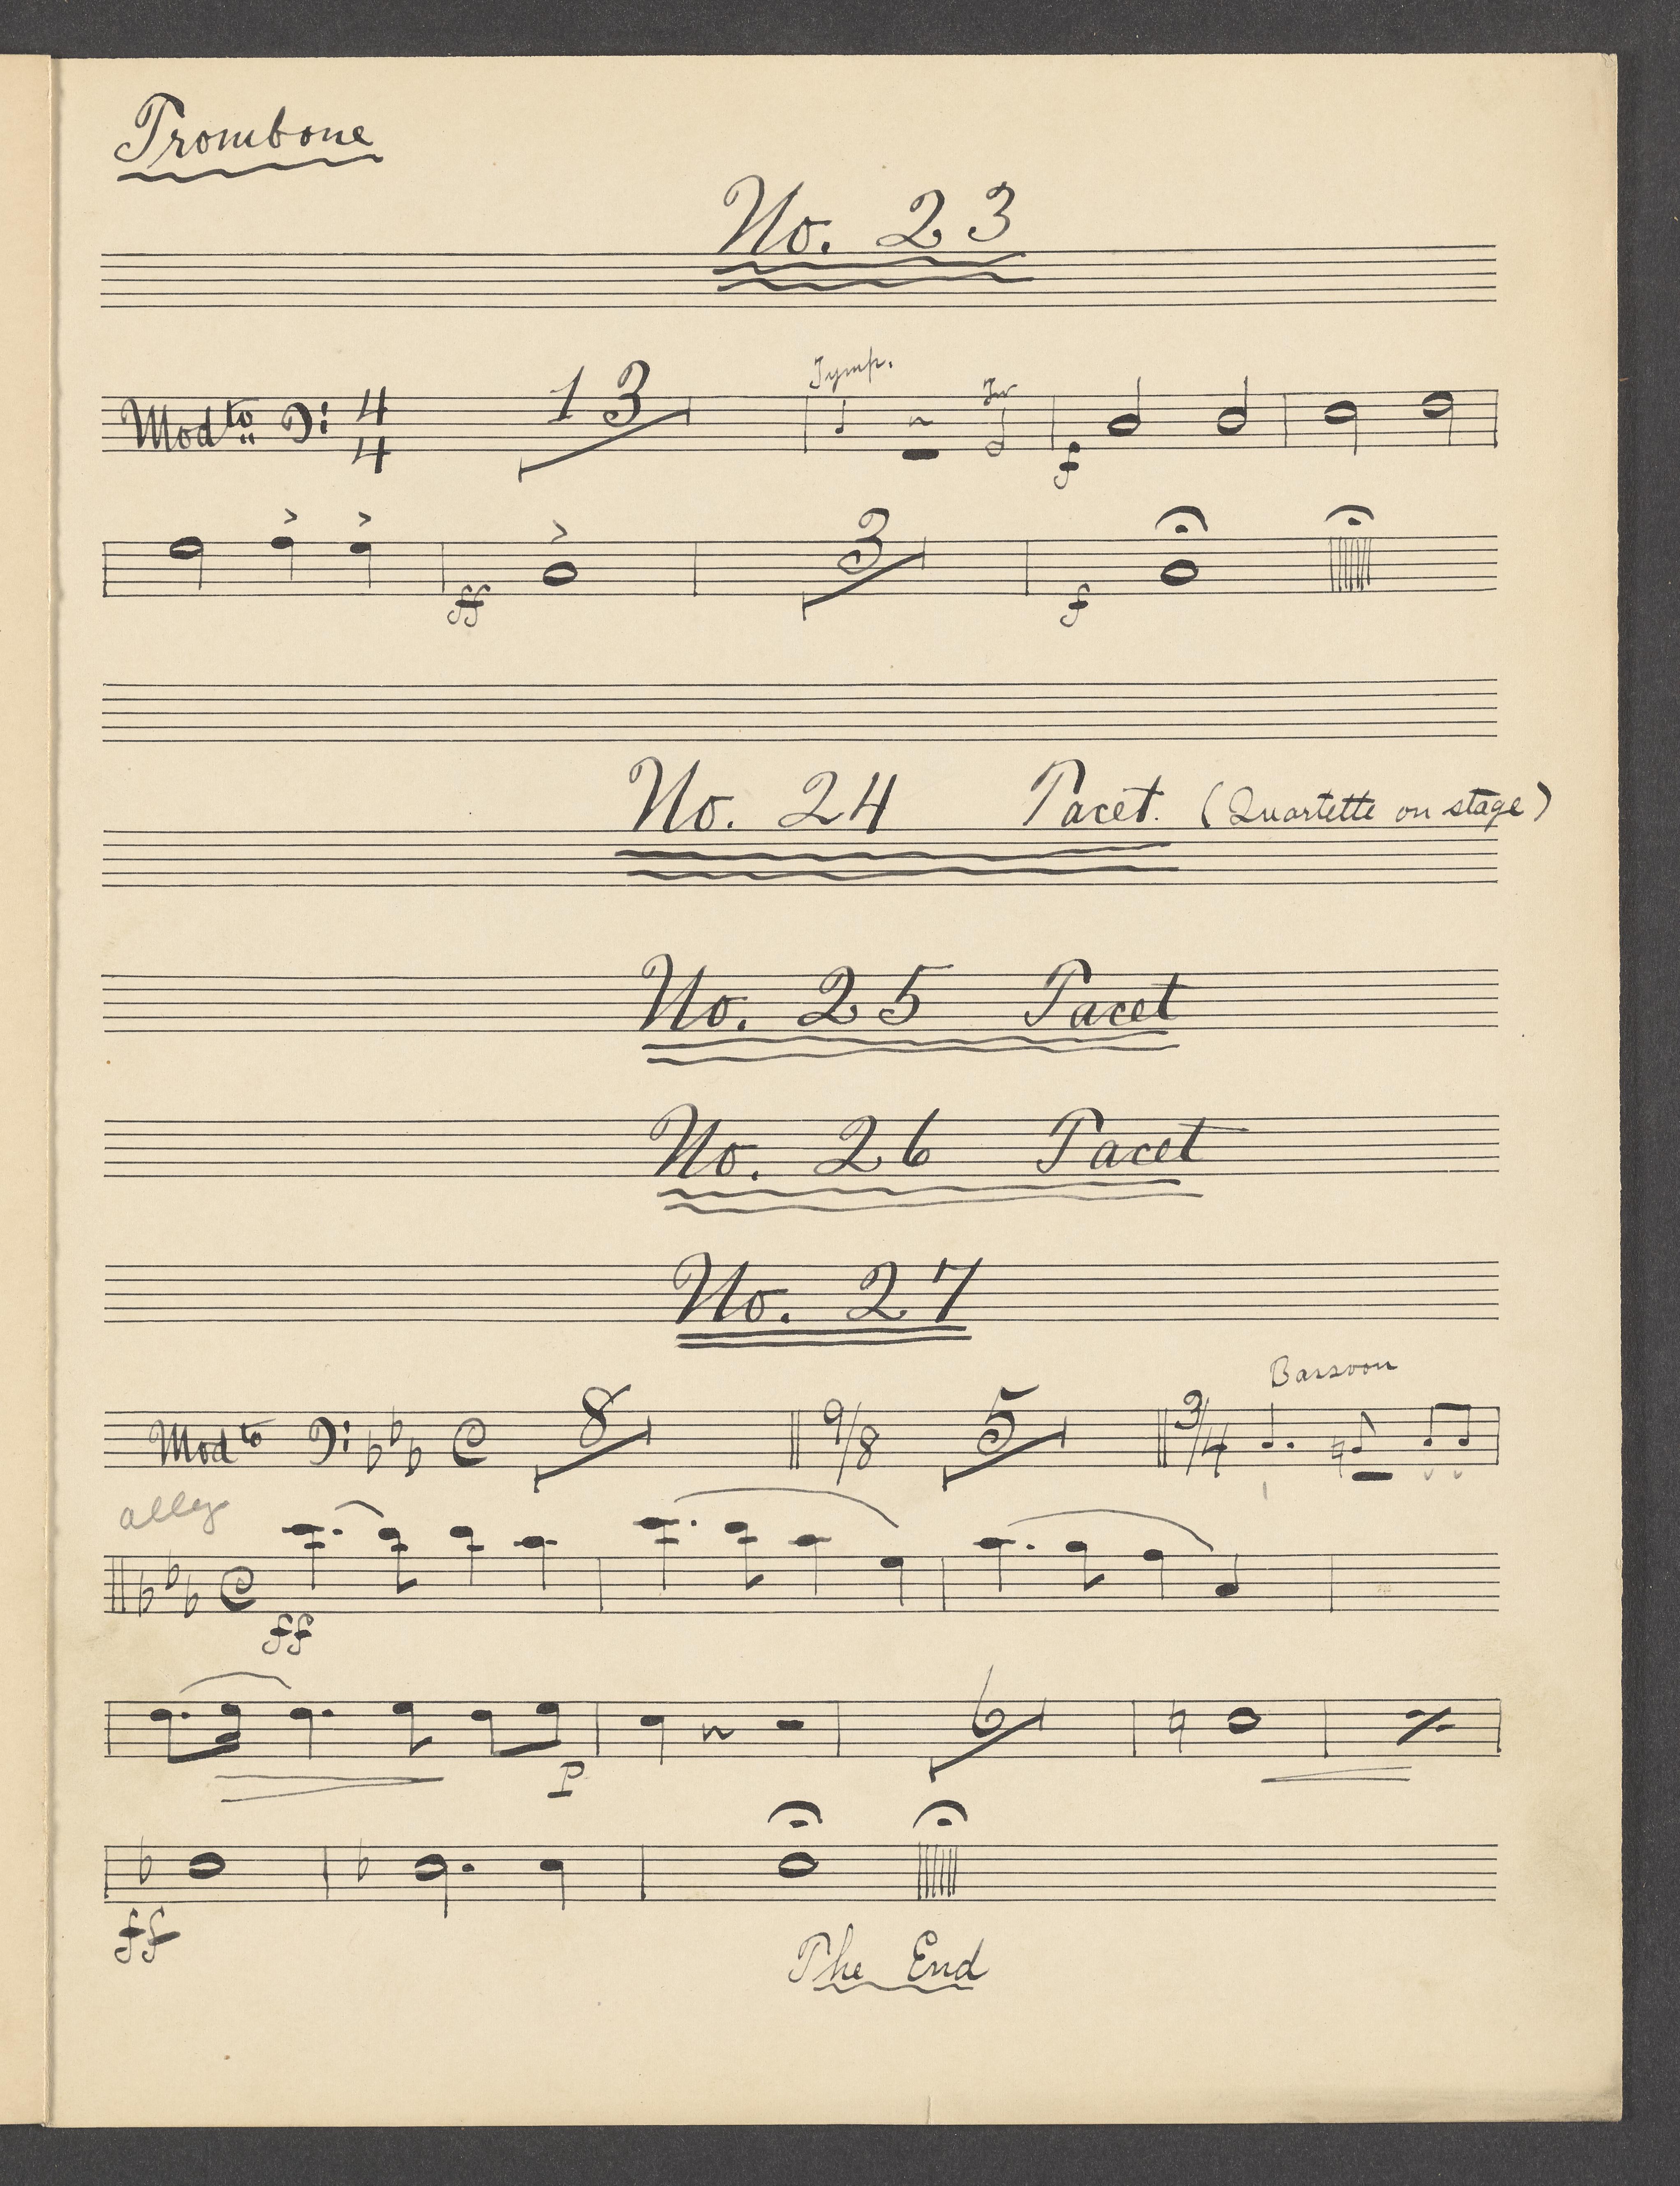 Trombone
No. 23
Modto 4/4 13 Tymp. Tr f
ff 3 f
No. 24 Tacet. (Quartette on stage)
No. 25 Tacet
No. 26 Tacet
No. 27
Bassoon
Modto C 8 9/8 5 3/4
alleg
C ff
6
P
ff
The End